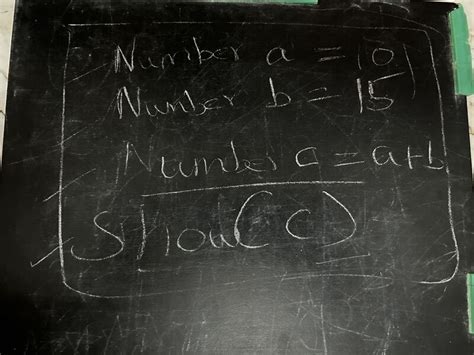 Number a = 10
Number b = 15
Number c = a+b
Show(c)